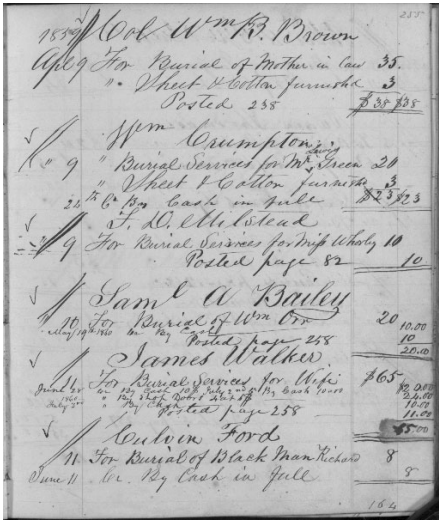 255
1859 Col Wm B. Brown
Apl 9 For Burial of Mother in law 35.
" Sheet & Cotton furnishd 3
Posted 238 $38 $38
Wm Crumpton
" 9 " Burial Services for Mr Green 20
" Sheet & Cotton furnishd 3
24th Cr By Cash in full $23 $23
F. D. Milstead
" 9 For Burial Services for Miss 10
Posted page 82 10
Saml A Bailey
" 10 For Burial of Wm Orr 20
May 19th 1860 Cr By Cash 10.00
Posted page 258 10
20.00
James Walker
" For Burial Services for Wife $65
June 28 Cr By Cash 10 July 2nd By Cash 10.00 $20.00
1860 " By Shop Doors 24.00
July " By Cash 10.00
Posted page 258 11.00
65.00
Culvin Ford
11 For Burial of Black Man Richard 8
June 11 Cr. By Cash in full 8
164